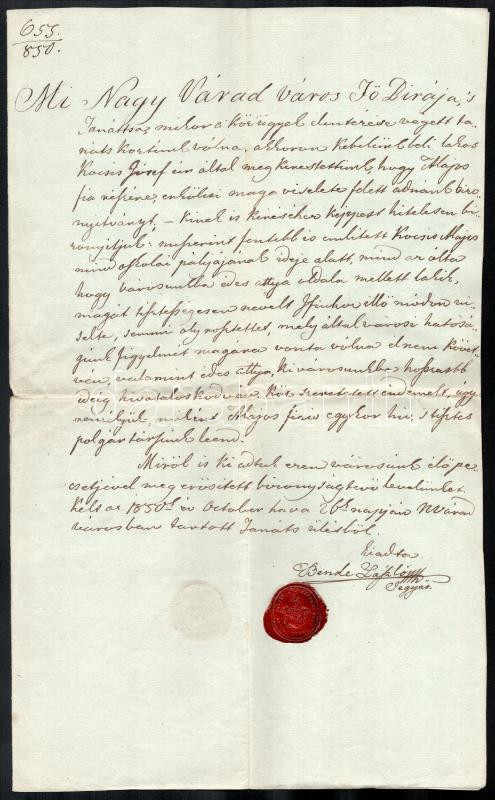 655.
850.
Mi Nagy Várad város Fő Birája, 's
Tanáttsa, mikor a köz üggyel elintézése végett ta-
náts koztunk volna, akkoron kebelünkbeli lakos
Kocsis Jósef úr által meg kerestettünk, hogy Alajos
fia részére, erkölcsi maga viselete felett adnánk bizo-
nyitványt, – kinek is kérésehez képpest hitelesen bi-
zonyitjuk: miszerint fentebb is emlitett Kocsis Alajos
mind oskolai pályájának ideje alatt, mind az olta
hogy városunkba édes attya oldala mellett lakik,
magát tisztességesen nevelt Ifiuhoz illő módon vi-
selte, semmi oly tettet, mely által városi hatósá-
gunk figyelmét magára vonta volna el nem köve-
vén, valamint édes attya, ki városunkba hosszasabb
ideig hivataloskodván köz szeretetet érdemelt, úgy
reméljük, miként Alajos fia is egykor hiv, 's tisztes
polgár társunk leend.
Miről is ki adtuk ezen városunk élő pe-
csetjével meg erősitett bizonyságtévő levelünket
Kelt az 1850k év October hava 26k napján NVárad
városban tartott Tanáts ülésből.
kiadta
Bende László
Jegyző